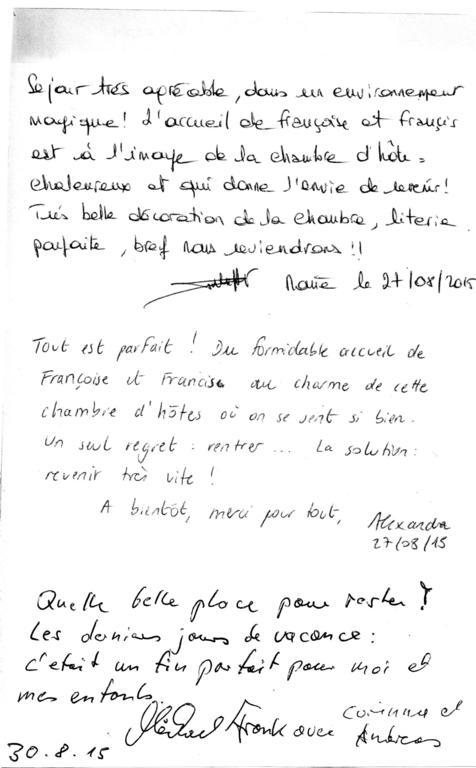 Sejour très agréable, dans un environnement
magique! L'accueil de françoise et françis
est à l'image de la chambre d'hôte =
chaleureux et qui donne l'envie de revenir!
Très belle décoration de la chambre, literie
parfaite, bref nous reviendrons !!
le 27/08/2015
Tout est parfait ! Du formidable accueil de
Françoise et Francis au charme de cette
chambre d'hôtes où on se sent si bien.
Un seul regret : rentrer ... La solution :
revenir très vite !
A bientôt, merci pour tout,
Alexandra
27/08/15
Quelle belle place pour rester !
Les derniers jours de vacance :
c'etait un fin parfait pour moi et
mes enfants.
Michael Frank avec Corinna et
Andreas
30.8.15